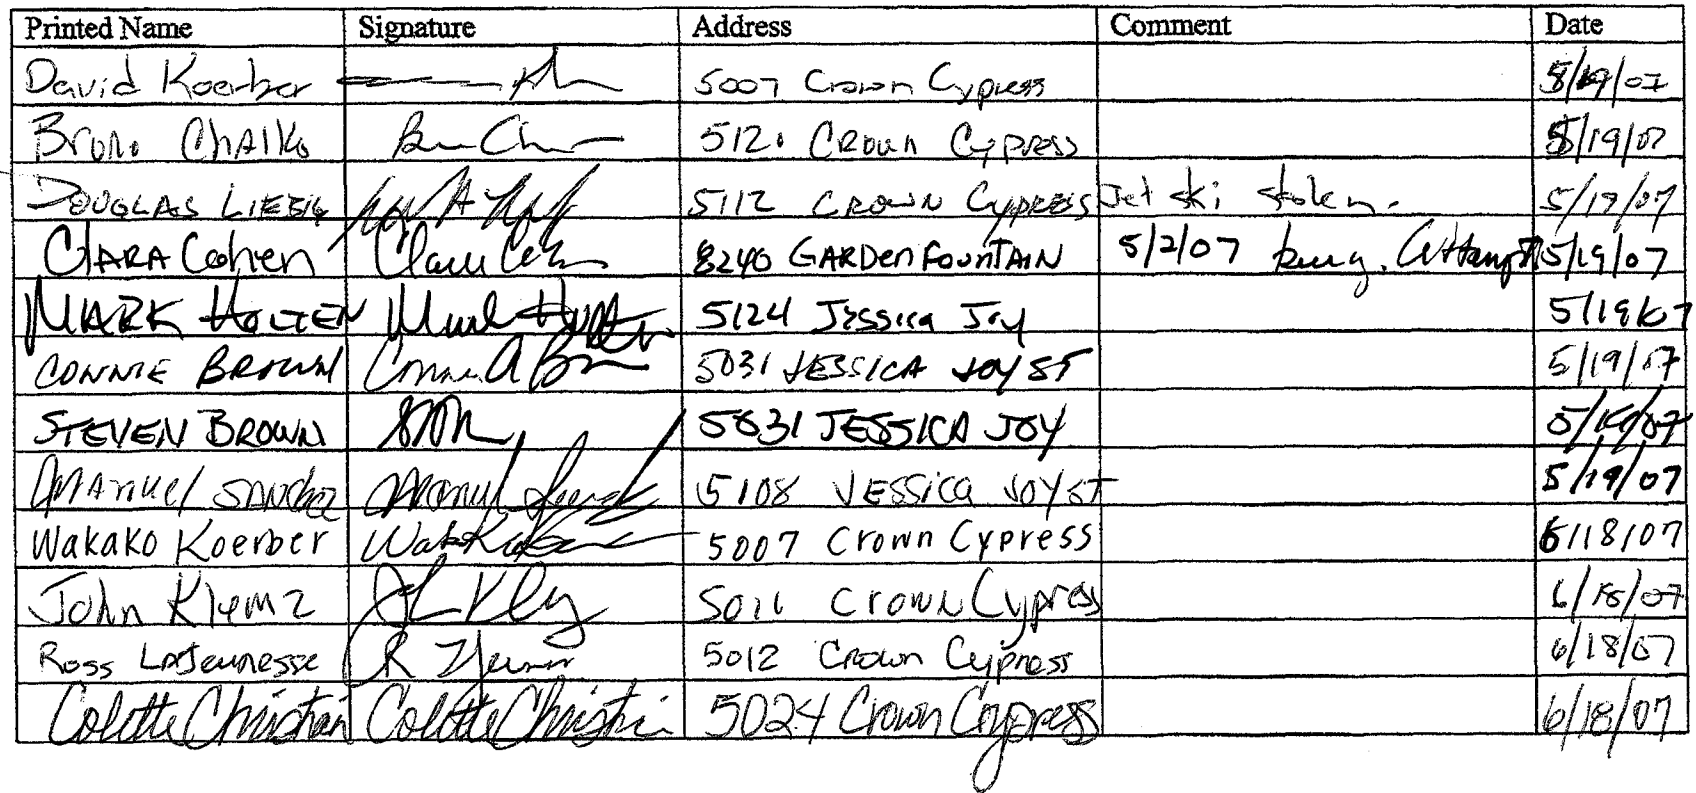 Printed Name Signature Address Comment Date
David Koerber 5007 Crown Cypress 5/19/07
Bruno Chalko 5120 Crown Cypress 5/19/07
DOUGLAS LIEBIG 5112 CROWN Cypress Jet ski stolen. 5/19/07
CLARA Cohen 8240 GARDEN FOUNTAIN 5/2/07 burg. Attempt 5/19/07
MARK HOLTEN 5124 Jessica Joy 5/19/07
CONNIE BROWN 5031 JESSICA JOY ST 5/19/07
STEVEN BROWN 5031 JESSICA JOY 5/19/07
Manuel Sanchez 5108 JESSICA JOY ST 5/19/07
Wakako Koerber 5007 Crown Cypress 6/18/07
John Klemz Crown Cypress 6/18/07
Ross LaJeunesse 5012 Crown Cypress 6/18/07
Colette Christian Colette Christian 5024 Crown Cypress 6/18/07